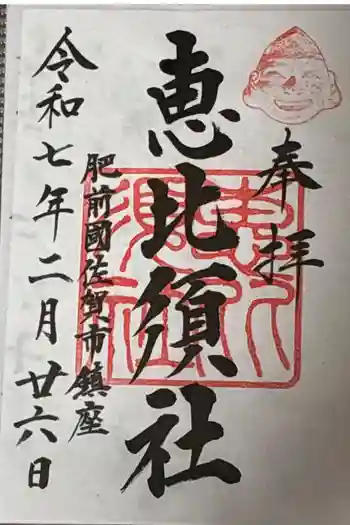 奉拝
恵比須社
肥前國佐賀市鎮座
令和七年二月廿六日